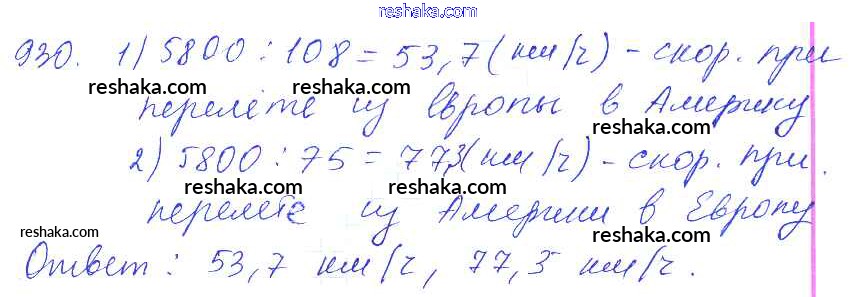 reshaka.ru
930. 1) 5800 : 108 = 53,7 (км/ч) - скор. при
reshaka.ru reshaka.ru
перелёте из Европы в Америку
reshaka.ru
2) 5800 : 75 = 77,3 (км/ч) - скор. при
reshaka.ru reshaka.ru
перелёте из Америки в Европу
reshaka.ru reshaka.ru
Ответ: 53,7 км/ч, 77,3 км/ч.
reshaka.ru